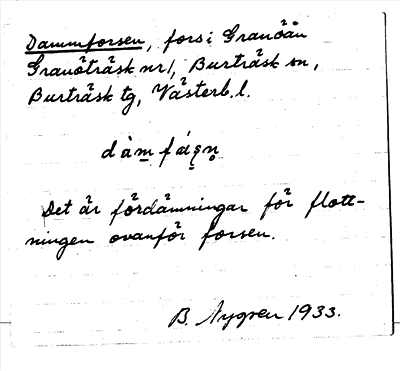 Dammforsen, fors i Granöån
Granöträsk nr 1, Burträsk sn,
Burträsk tg, Västerb. l.
Det är fördämningar för flott-
ningen ovanför forsen.
B. Nygren 1933.